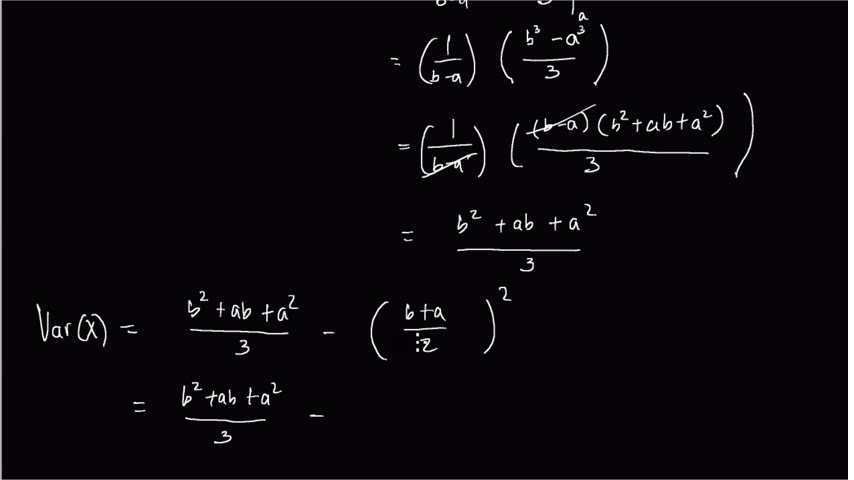 = (1/(b-a)) ((b³ - a³)/3)
= (1/(b-a)) ((b-a)(b² + ab + a²)/3)
= (b² + ab + a²)/3
Var(X) = (b² + ab + a²)/3 - ((b+a)/2)²
= (b² + ab + a²)/3 -